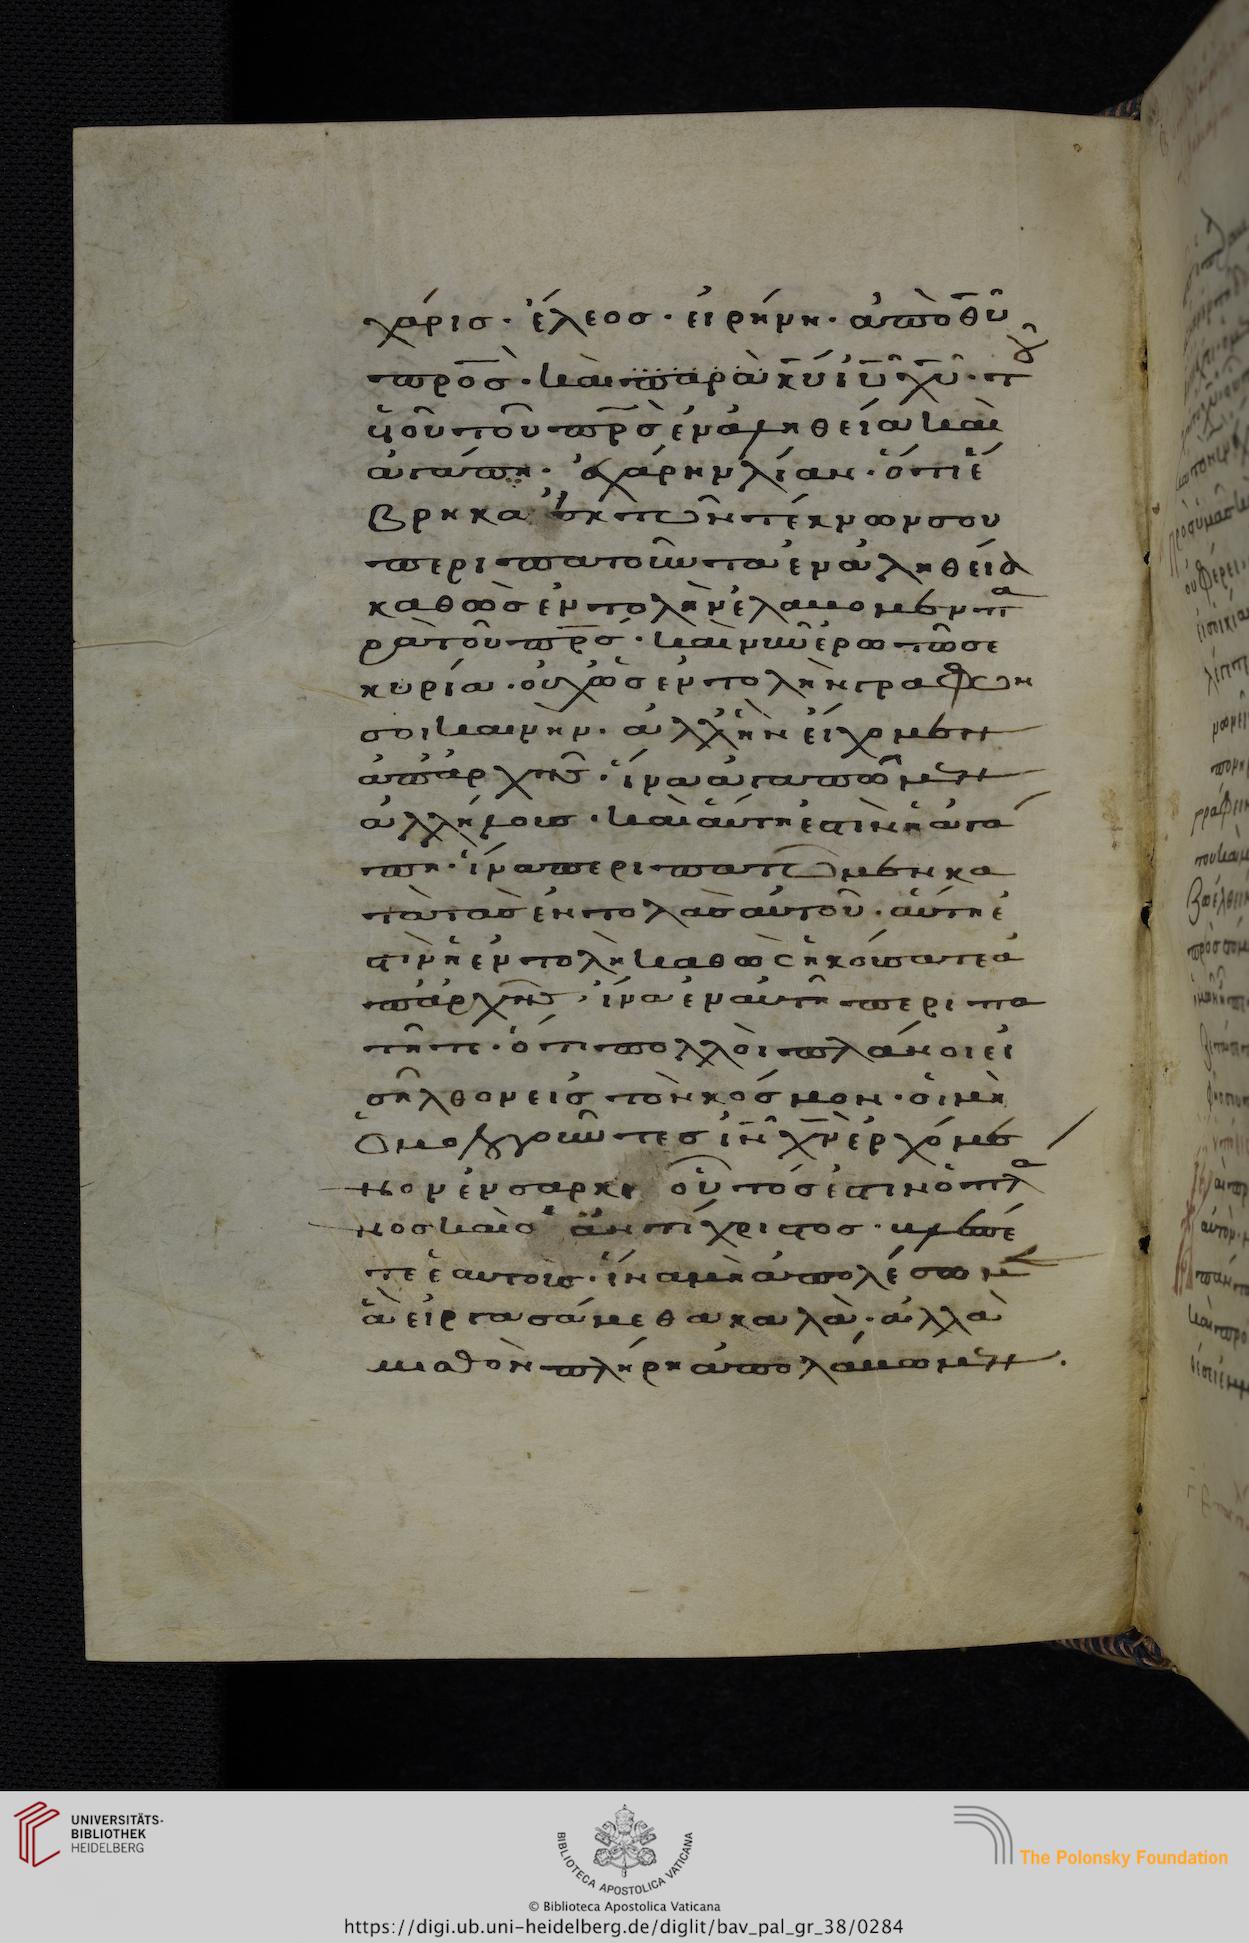 χάρις· ἔλεος· εἰρήνη· ἀπὸ θ̅υ̅
π̅ρ̅ο̅ς̅· καὶ παρὰ κ̅υ̅ ἰ̅υ̅ χ̅υ̅· τοῦ
ὑοῦ τοῦ π̅ρ̅ς̅ ἐν ἀληθεία καὶ
ἀγάπη· ἐχάρην λίαν· ὅτι εὕ
ρηκα ἐκ τῶν τέκνων σου
περιπατοῦντα ἐν ἀληθεία
καθὼς ἐντολὴν ἐλάβομεν πα
ρὰ τοῦ π̅ρ̅ς̅· καὶ νῦν ἐρωτῶ σε
κυρία· οὐχ ὡς ἐντολὴν γράφων
σοι καινήν· ἀλλ' ἣν εἴχομεν
ἀπ' ἀρχῆς· ἵνα ἀγαπῶμεν
ἀλλήλους· καὶ αὕτη ἐστὶν ἡ ἀγά
πη· ἵνα περιπατῶμεν κα
τὰ τὰς ἐντολὰς αὐτοῦ· αὕτη ἐ
στὶν ἡ ἐντολὴ καθὼς ἠκούσατε ἀ
π' ἀρχῆς· ἵνα ἐν αὐτῆ περιπα
τῆτε· ὅτι πολλοὶ πλάνοι εἰ
σῆλθον εἰς τὸν κόσμον· οἱ μὴ
ὁμολογοῦντες ἰ̅ν̅ χ̅ν̅ ἐρχόμε
νον ἐν σαρκί οὗτός ἐστιν ὁ πλά
νος καὶ ὁ ἀντίχριστος· βλέπε
τε ἑαυτοῖς· ἵνα μὴ ἀπολέσωμεν
ἃ εἰργασάμεθα καλὰ· ἀλλὰ
μισθὸν πλήρη ἀπολάβωμεν.
UNIVERSITÄTS-
BIBLIOTHEK
HEIDELBERG
BIBLIOTECA APOSTOLICA VATICANA
© Biblioteca Apostolica Vaticana
The Polonsky Foundation
https://digi.ub.uni-heidelberg.de/diglit/bav_pal_gr_38/0284